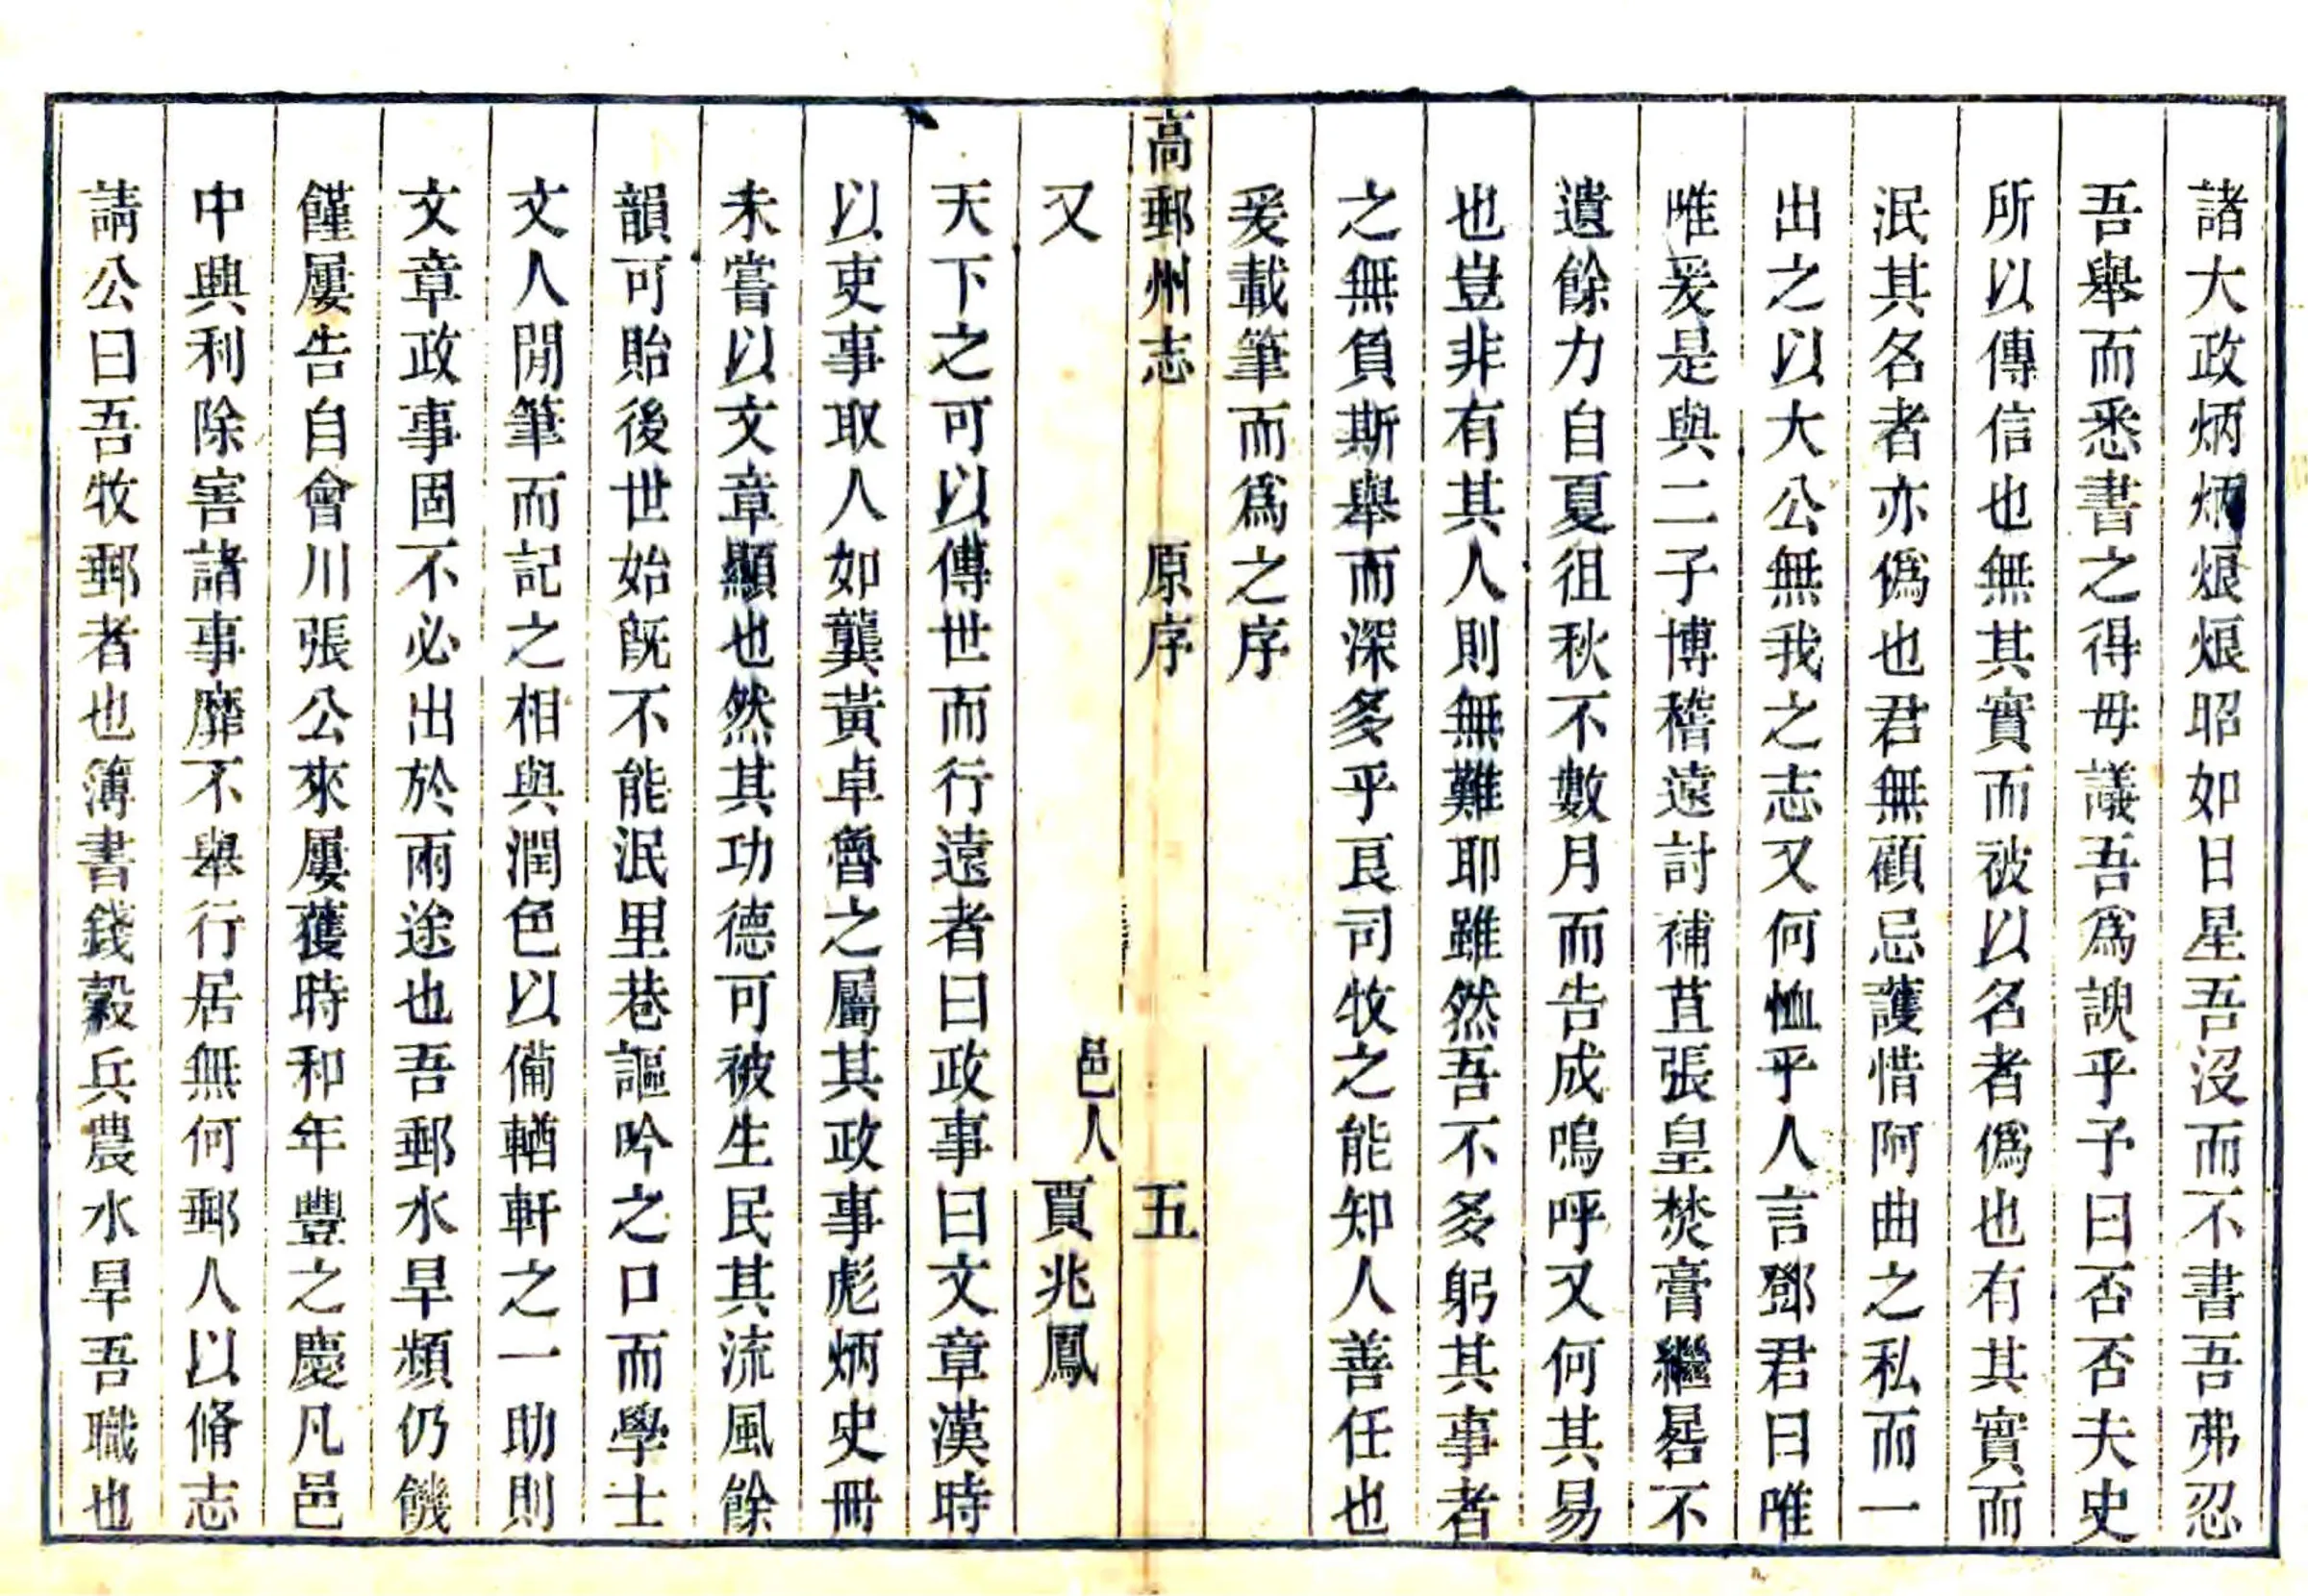 諸大政炳炳烺烺昭如日星吾沒而不書吾弗忍
吾舉而悉書之得毋議吾爲諛乎予曰否否夫史
所以傳信也無其實而被以名者僞也有其實而
泯其名者亦僞也君無顧忌護惜阿曲之私而一
出之以大公無我之志又何恤乎人言鄧君曰唯
唯爰是與二子博稽遠討補苴張皇焚膏繼晷不
遺餘力自夏徂秋不數月而告成嗚呼又何其易
也豈非有其人則無難耶雖然吾不多躬其事者
之無負斯舉而深多乎良司牧之能知人善任也
爰載筆而爲之序
高郵州志 原序 五
又 邑人 賈兆鳳
天下之可以傳世而行遠者曰政事曰文章漢時
以吏事取人如龔黃卓魯之屬其政事彪炳史冊
未嘗以文章顯也然其功德可被生民其流風餘
韻可貽後世始旣不能泯里巷謳吟之口而學士
文人閒筆而記之相與潤色以備輶軒之一助則
文章政事固不必出於兩途也吾郵水旱頻仍饑
饉屢告自會川張公來屢獲時和年豐之慶凡邑
中興利除害諸事靡不舉行居無何郵人以脩志
請公曰吾牧郵者也簿書錢穀兵農水旱吾職也